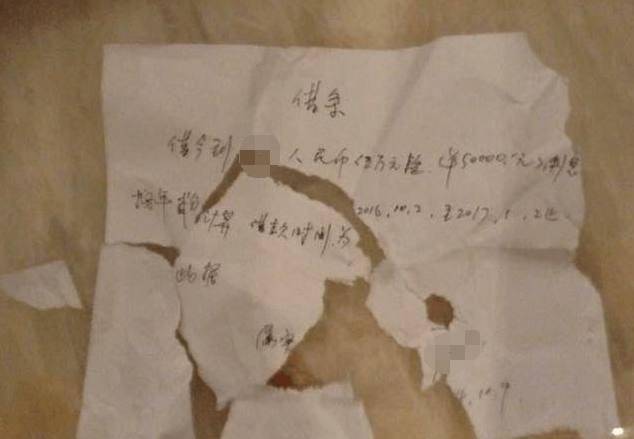 借条
借今到 人民币伍万元整.(¥50000.元)利息
按年 计算 借款时间为 2016.10.2.至2017.1.2止.
此据
10.9.